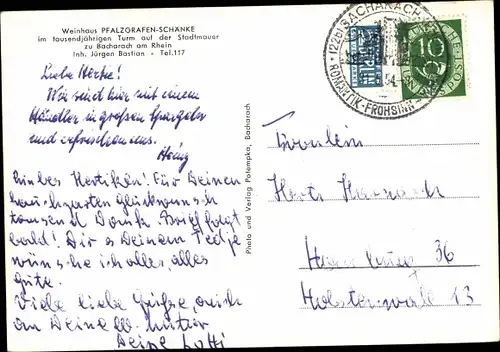 Weinhaus PFALZGRAFEN-SCHÄNKE
im tausendjährigen Turm auf der Stadtmauer
zu Bacharach am Rhein
Inh. Jürgen Bastian - Tel. 117
Liebe Herta!
Wir sind hier mit einem
Händler in großen Spargeln
und erfrischen uns.
Heinz
Liebes Hertilein! Für Deinen
Glückwunsch
tausend Dank. Brief folgt
bald! Dir & Deinem
wünsche ich alles, alles
Gute.
Viele liebe Grüße, auch
an Deine Mutter
Deine Lotti
Photo und Verlag Polempka, Bacharach
(22b) BACHARACH
ROMANTIK-FROHSINN
54
10
Fräulein
Herta
Hamburg 36
Holstenwall 13